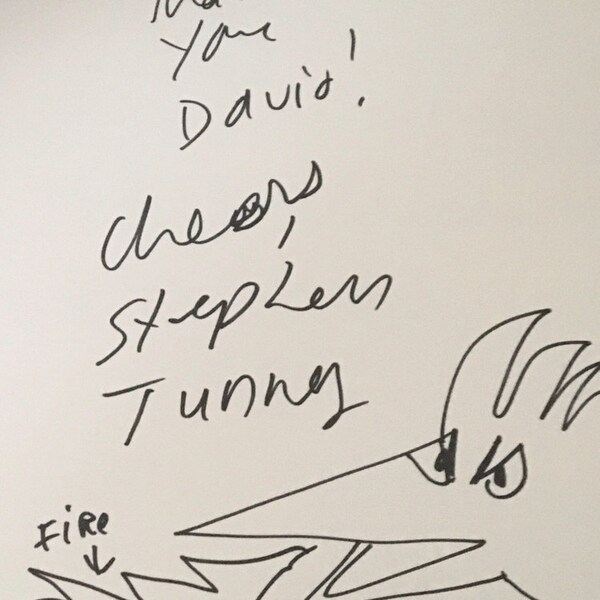 You
David!
Cheers,
Stephen
Tunney
Fire